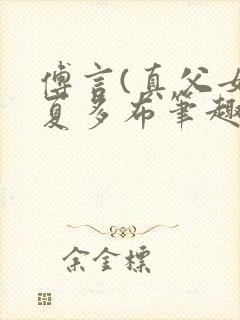 傅言(真父女
夏多布笔趣
余金标